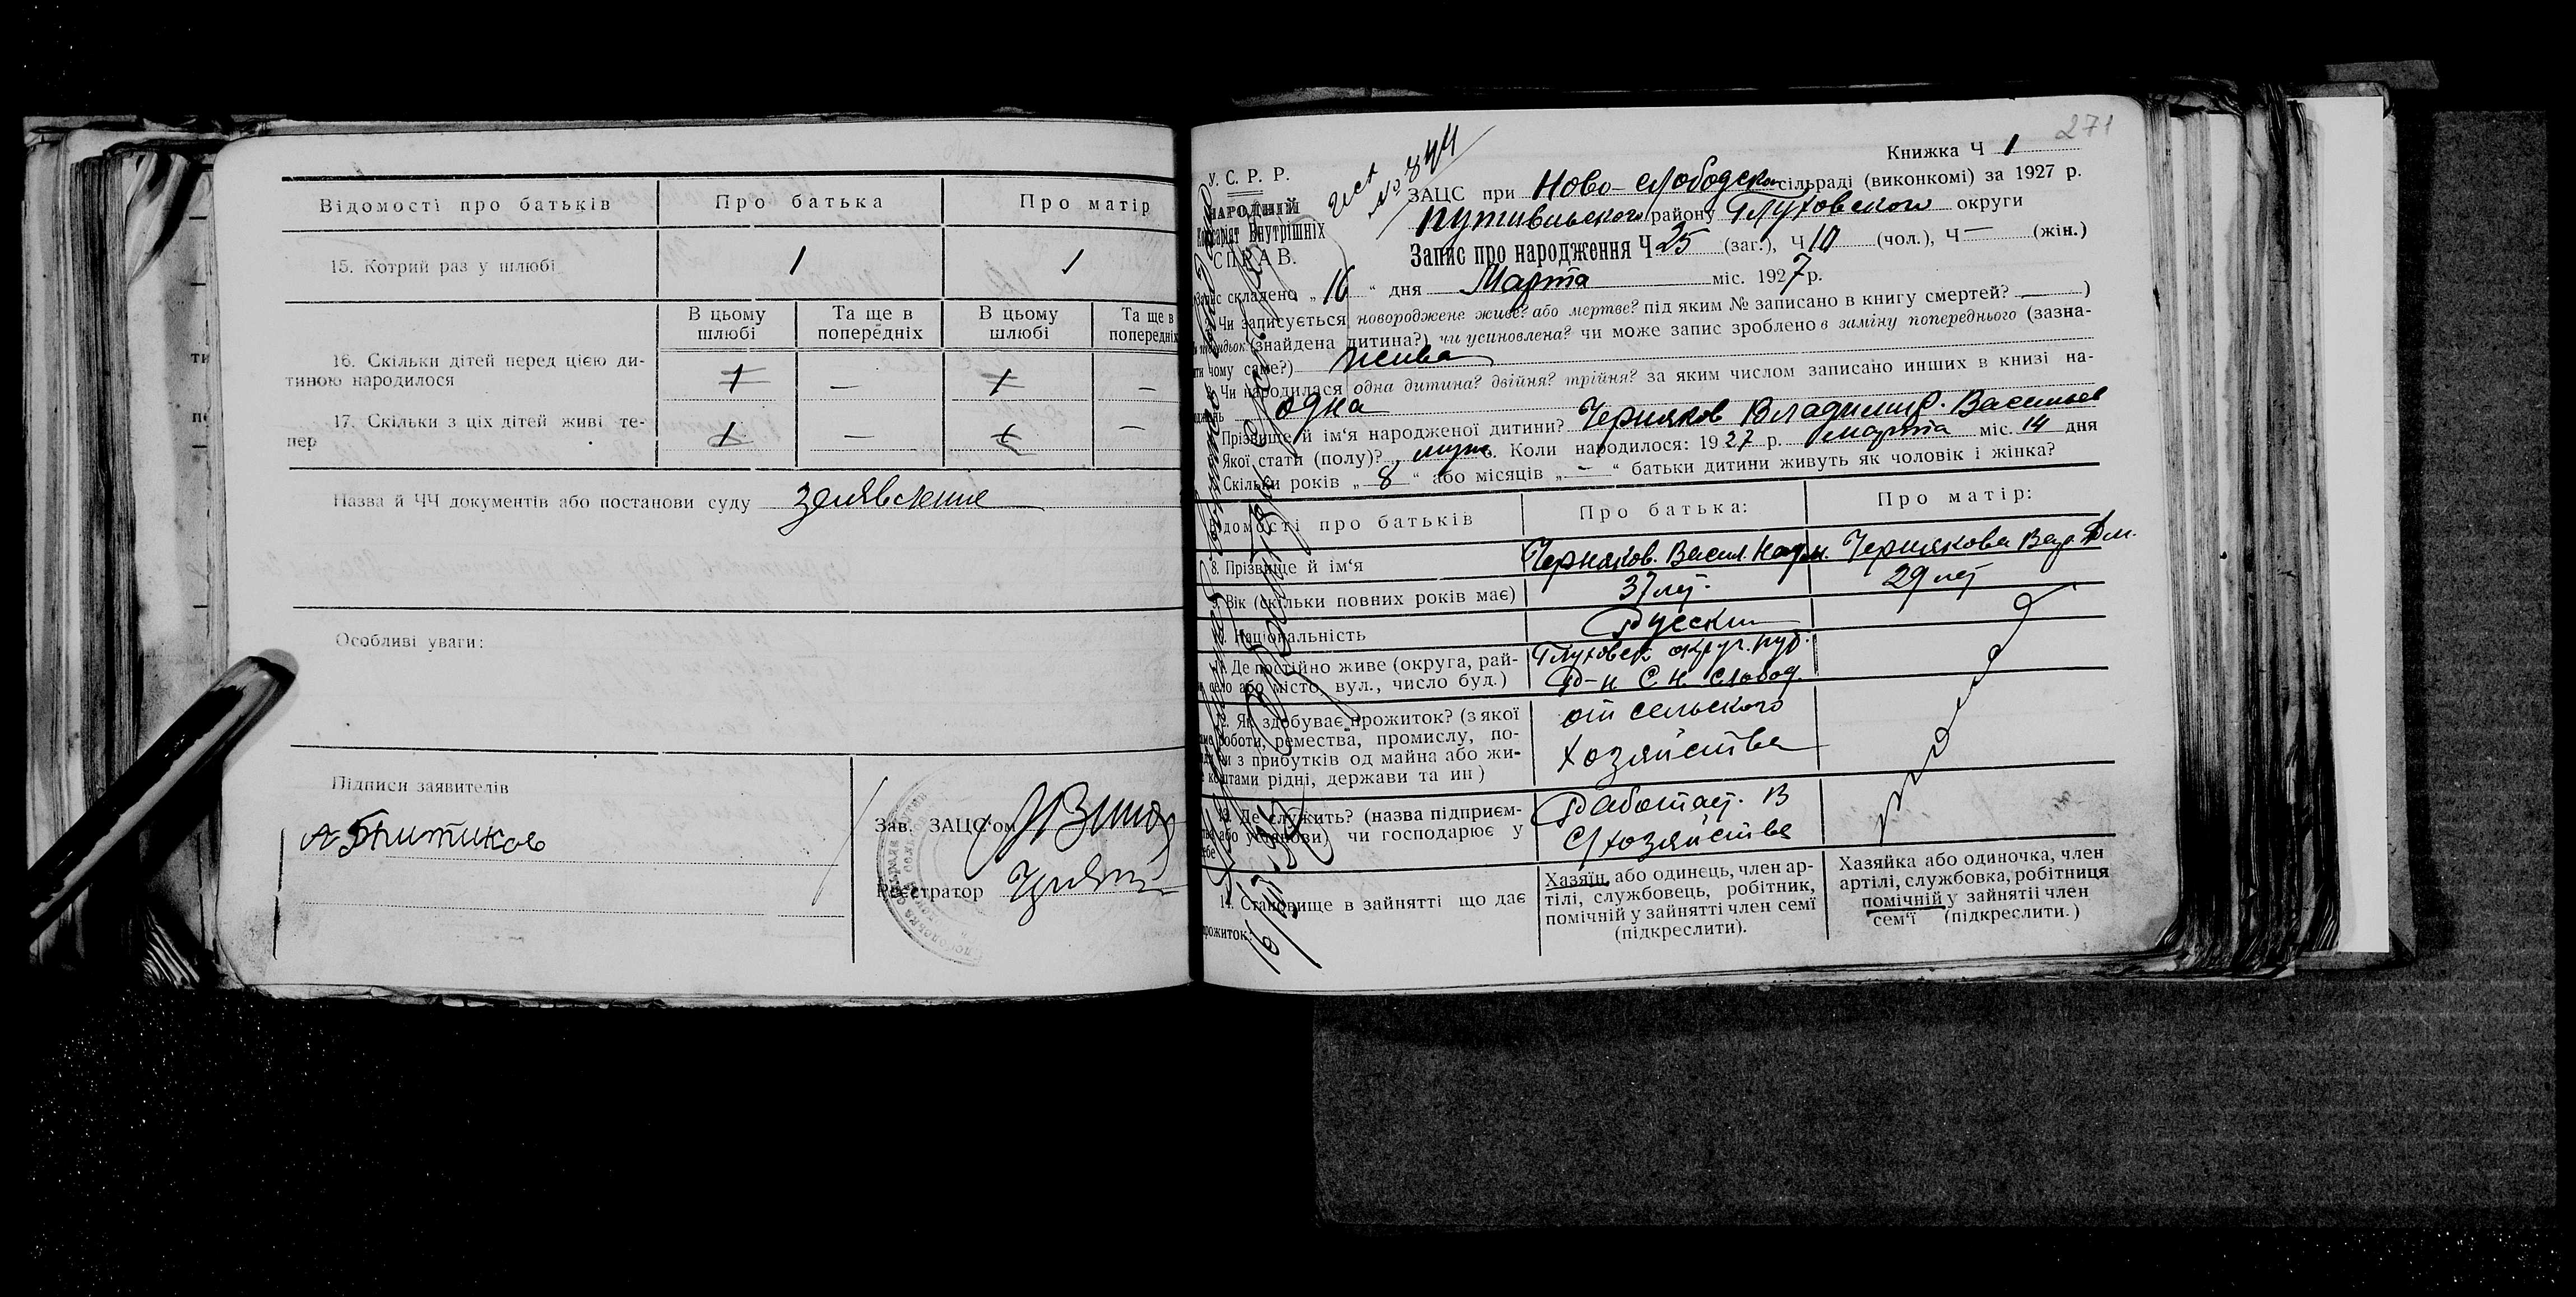 Відомості про батьків Про батька Про матір
15. Котрий раз у шлюбі 1 1
В цьому шлюбі Та ще в попередніх В цьому шлюбі Та ще в попередніх
16. Скільки дітей перед цією ди-
тиною народилося 1 — 1 —
17. Скільки з ціх дітей живі те-
пер 1 — 1 —
Назва й ЧЧ документів або постанови суду заявление
Особливі уваги:
Підписи заявителів
Зав. ЗАЦС'ом
Реєстратор
271
Книжка Ч 1
У. С. Р. Р.
НАРОДНІЙ
Комісаріят Внутрішніх
СПРАВ.
№ 844
ЗАЦС при Ново-слободском сільраді (виконкомі) за 1927 р.
Путивльского району Глуховского округи
Запис про народження Ч 25 (заг.), Ч 10 (чол.), Ч — (жін.)
складено „16“ дня Марта міс. 1927 р.
Чи записується новороджене живе? або мертве? під яким № записано в книгу смертей? —)
(знайдена дитина?) чи усиновлена? чи може запис зроблено в заміну попереднього (зазна-
чому саме?) жива
Чи народилася одна дитина? двійня? трійня? за яким числом записано инших в книзі на-
одна
Прізвище й ім'я народженої дитини? Черняков Владимир. Васильев
Якої стати (полу)? муж. Коли народилося: 1927 р. марта міс. 14 дня
Скільки років „8“ або місяців „—“ батьки дитини живуть як чоловік і жінка?
Відомості про батьків Про батька: Про матір:
8. Прізвище й ім'я Черняков. Васил. Наум. Чернякова Вар. Дм.
9. Вік (скільки повних років має) 37 лет. 29 лет
10. Національність Русский
11. Де постійно живе (округа, рай-
село або місто, вул., число буд.) Глуховск. округ. пут.
Р-н С. Н. Слобод.
12. Як здобуває прожиток? (з якої
роботи, ремества, промислу, по-
чи з прибутків од майна або жи-
коштами рідні, держави та ин) от сельского
хозяйства
13. Де служить? (назва підприєм-
або установи) чи господарює у
себе Работает. в
с/хозяйстве
14. Становище в зайнятті що дає
прожиток:
Хазяїн, або одинець, член ар-
тілі, службовець, робітник,
помічній у зайнятті член семї
(підкреслити).
Хазяйка або одиночка, член
артілі, службовка, робітниця
помічній у зайнятіі член
сем'ї (підкреслити.)